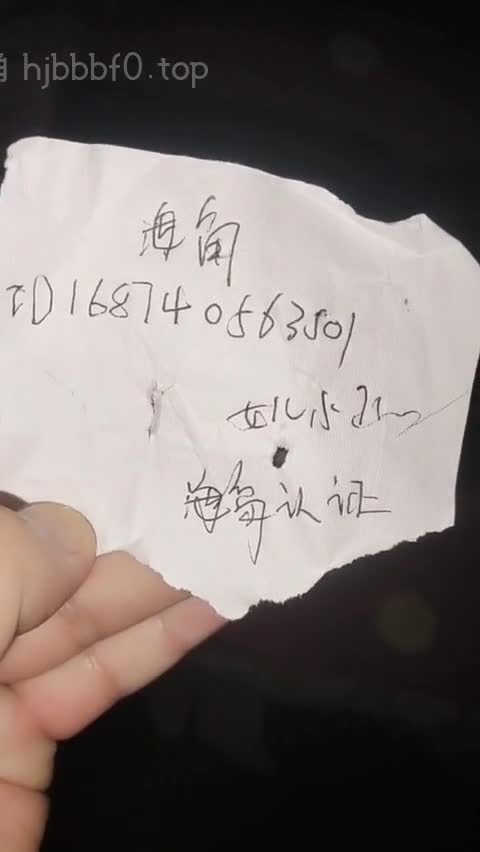 hjbbbf0.top
海角
ID168740563501
海角认证